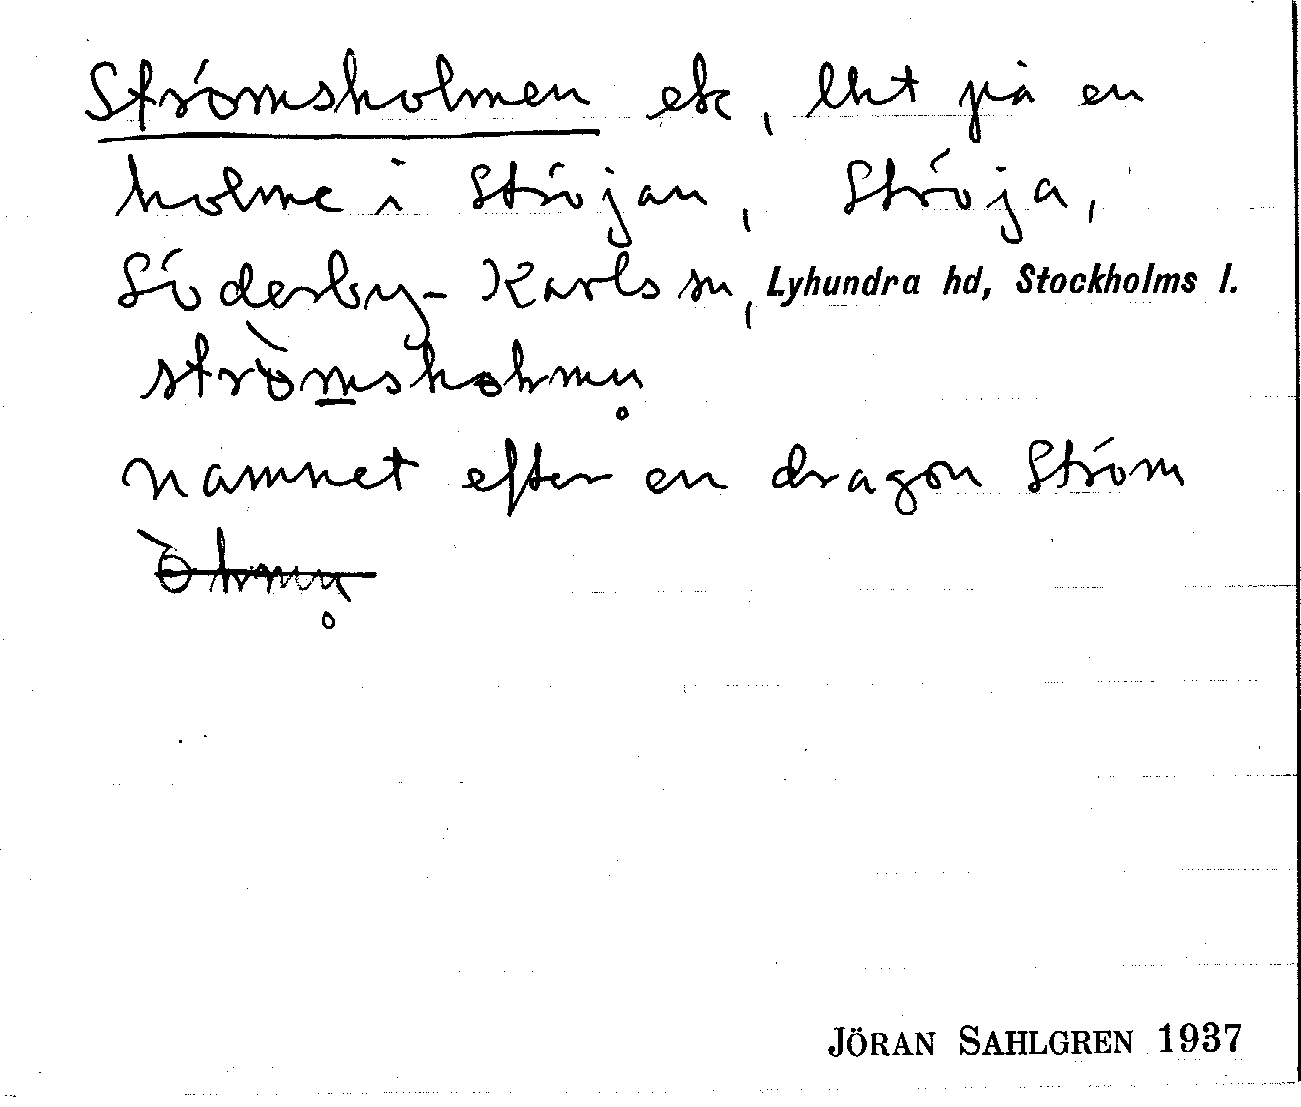 Strömsholmen ek, lht på en
holme i Ströjan, Ströja,
Söderby-Karls sn, Lyhundra hd, Stockholms l.
stròmsholmn̥
namnet efter en dragon Ström
JÖRAN SAHLGREN 1937